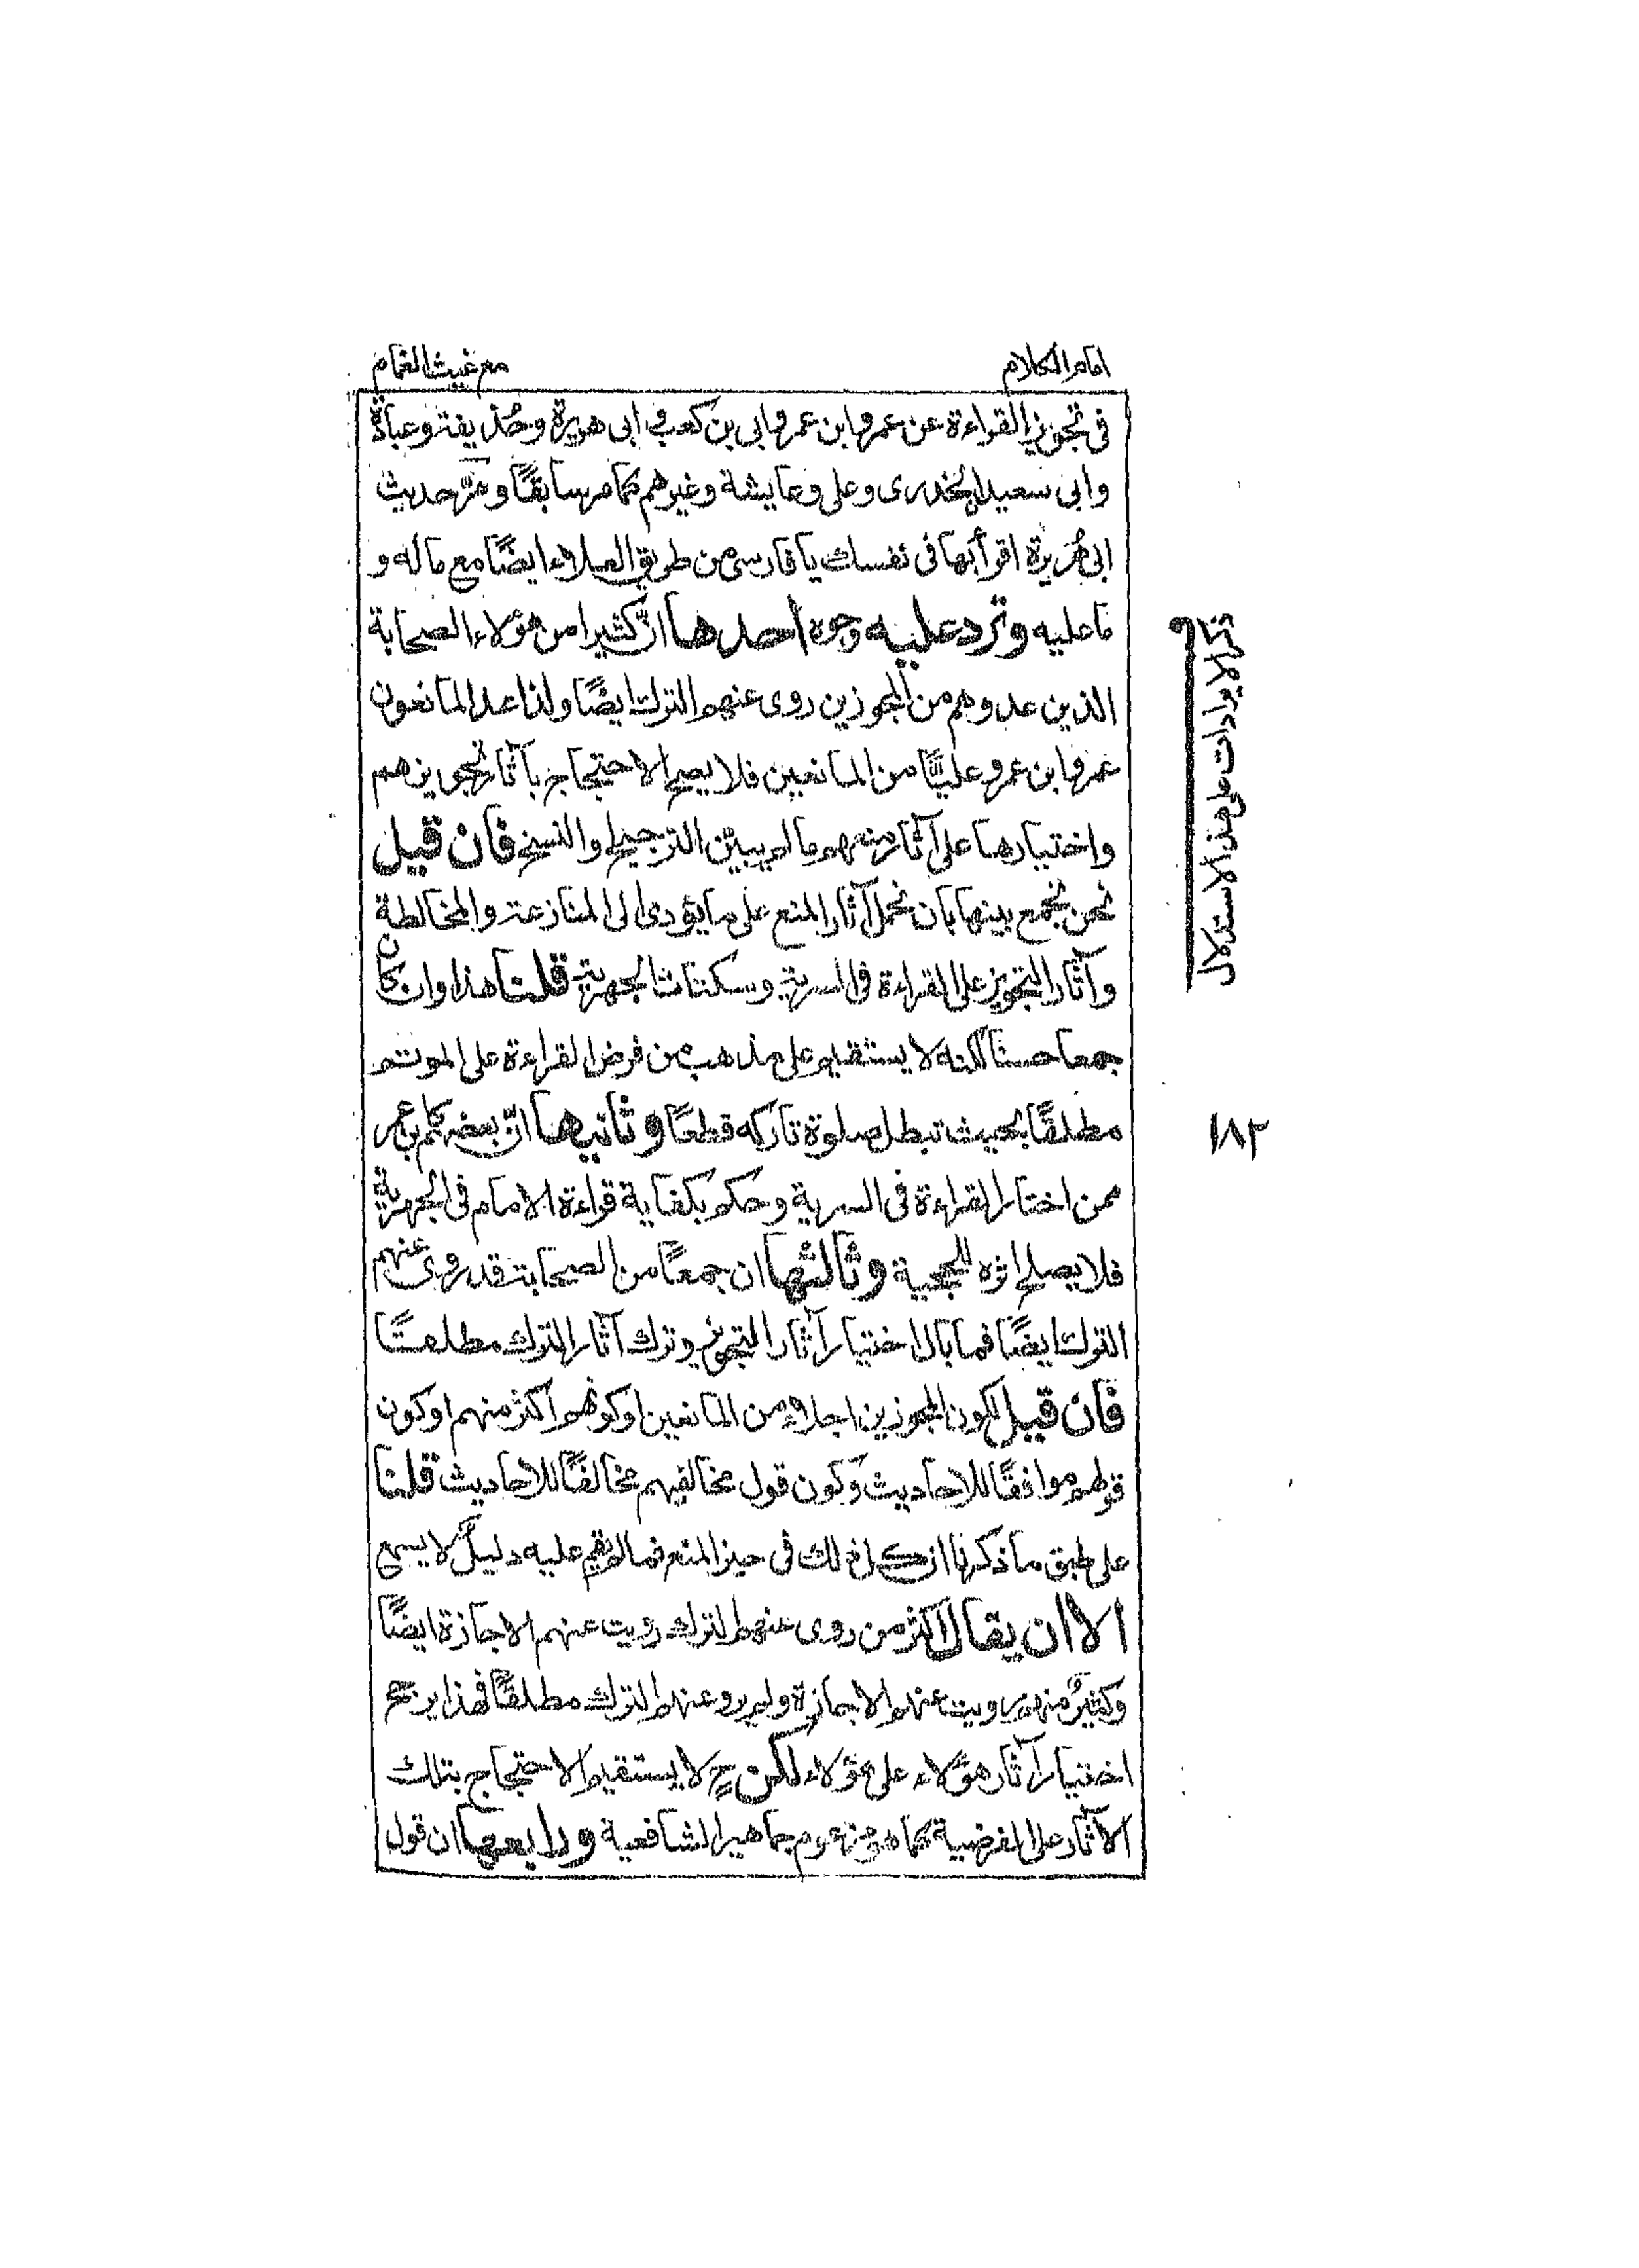 امام الكلام
مع غيث الغمام
فى تجويز القراءة عن عمر وابن عمر وابى بن كعب و ابى هريرة وحذيفة وعبادة
وابى سعيد الخدرى وعلى وعايشة وغيرهم كما مر سابقًا ومرّ حديث
ابى هُريرة اقرأ بها فى نفسك يا فارسى من طريق العلاء ايضًا مع ما له و
ما عليه وترد عليه وجوه احدها انّ كثيرا من هؤلاء الصحابة
الذين عدوهم من المجوزين روى عنهم الترك ايضًا ولذا عد المانعون
عمر وابن عمر وعليًّا من المانعين فلا يصح الاحتجاج بآثار تجويزهم
واختيارها على آثار منعهم ما لم يبين الترجيح او النسخ فان قيل
نحن نجمع بينها بان نحمل آثار المنع على ما يؤدى الى المنازعة والمخالطة
وآثار التجويز على القراءة فى السرية وسكتات الجهرية قلنا هذا وان كان
جمعا حسنا لكنه لا يستقيم على مذهب من فرض القراءة على الموتم
مطلقًا بحيث تبطل صلوة تاركه قطعًا وثانيها انّ بعضهم كابن عمر
ممن اختار القراءة فى السرية وحكم بكفاية قراءة الامام فى الجهرية
فلا يصلح اثره للحجية وثالثها ان جمعًا من الصحابة قد روى عنهم
الترك ايضًا فما بال اختيار آثار التجويز وترك آثار الترك مطلقًا
فان قيل لكون المجوزين اجلاء من المانعين او كونهم اكثر منهم او كون
قولهم موافقًا للاحاديث وكون قول مخالفيهم مخالفًا للاحاديث قلنا
على طبق ما ذكرنا ان كل ذلك فى حيز المنع فما لم يقم عليه دليلٌ لا يسمع
الا ان يقال اكثر من روى عنهم الترك رويت عنهم الاجازة ايضًا
وكثيرٌ منهم رويت عنهم الاجازة ولم يرو عنهم الترك مطلقًا فهذا يرجح
اختيار آثار هؤلاء على هؤلاء لكن ح لا يستقيم الاحتجاج بتلك
الآثار على الفرضية كما هو مزعوم جماهير الشافعية ورابعها ان قول
ذكر الايرادات على هذا الاستدلال
١٨٢